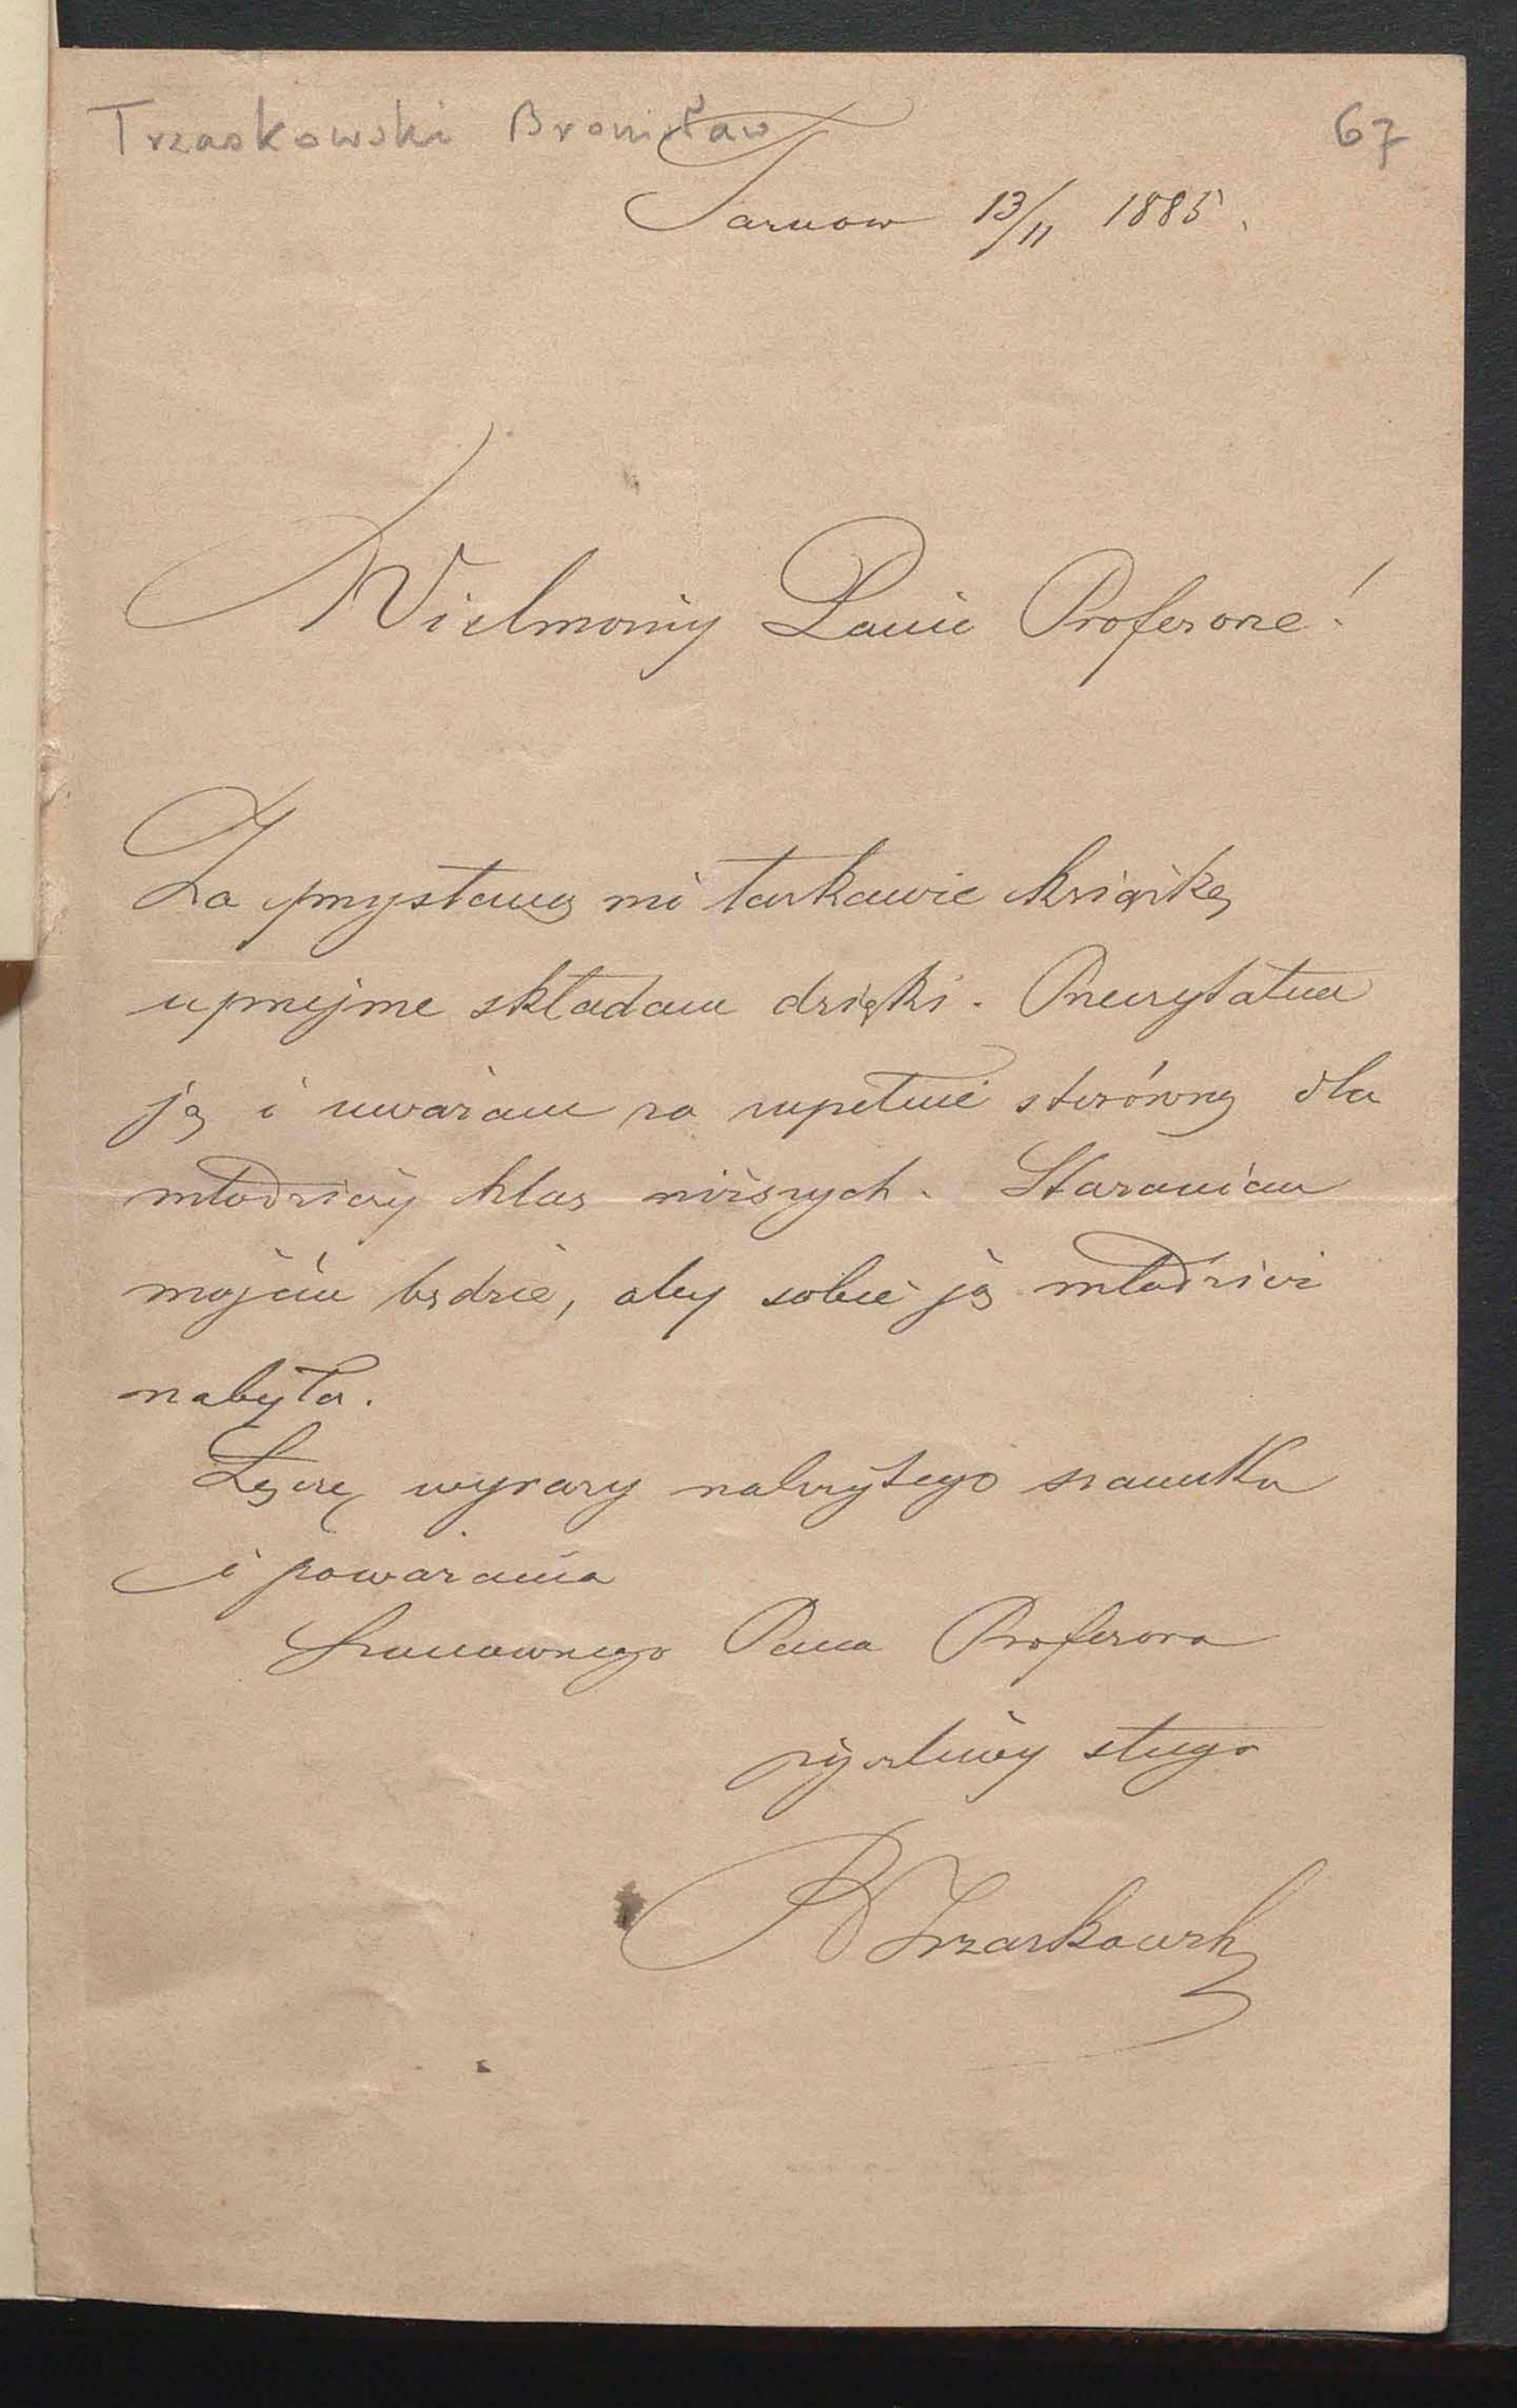 Trzaskowski Bronisław 67
Tarnow 13/11 1885.
Wielmożny Panie Profesorze!
Za przysłaną mi łaskawie książkę
uprzejme składam dzięki. Przeczytałem
ją i uważam za zupełnie stosowną dla
młodzieży klas niższych. Staraniem
mojem będzie, aby sobie ją młodzież
nabyła.
Łączę wyrazy należytego szacunku
i poważania
Szanownego Pana Profesora
życzliwy sługa
BTrzaskowski